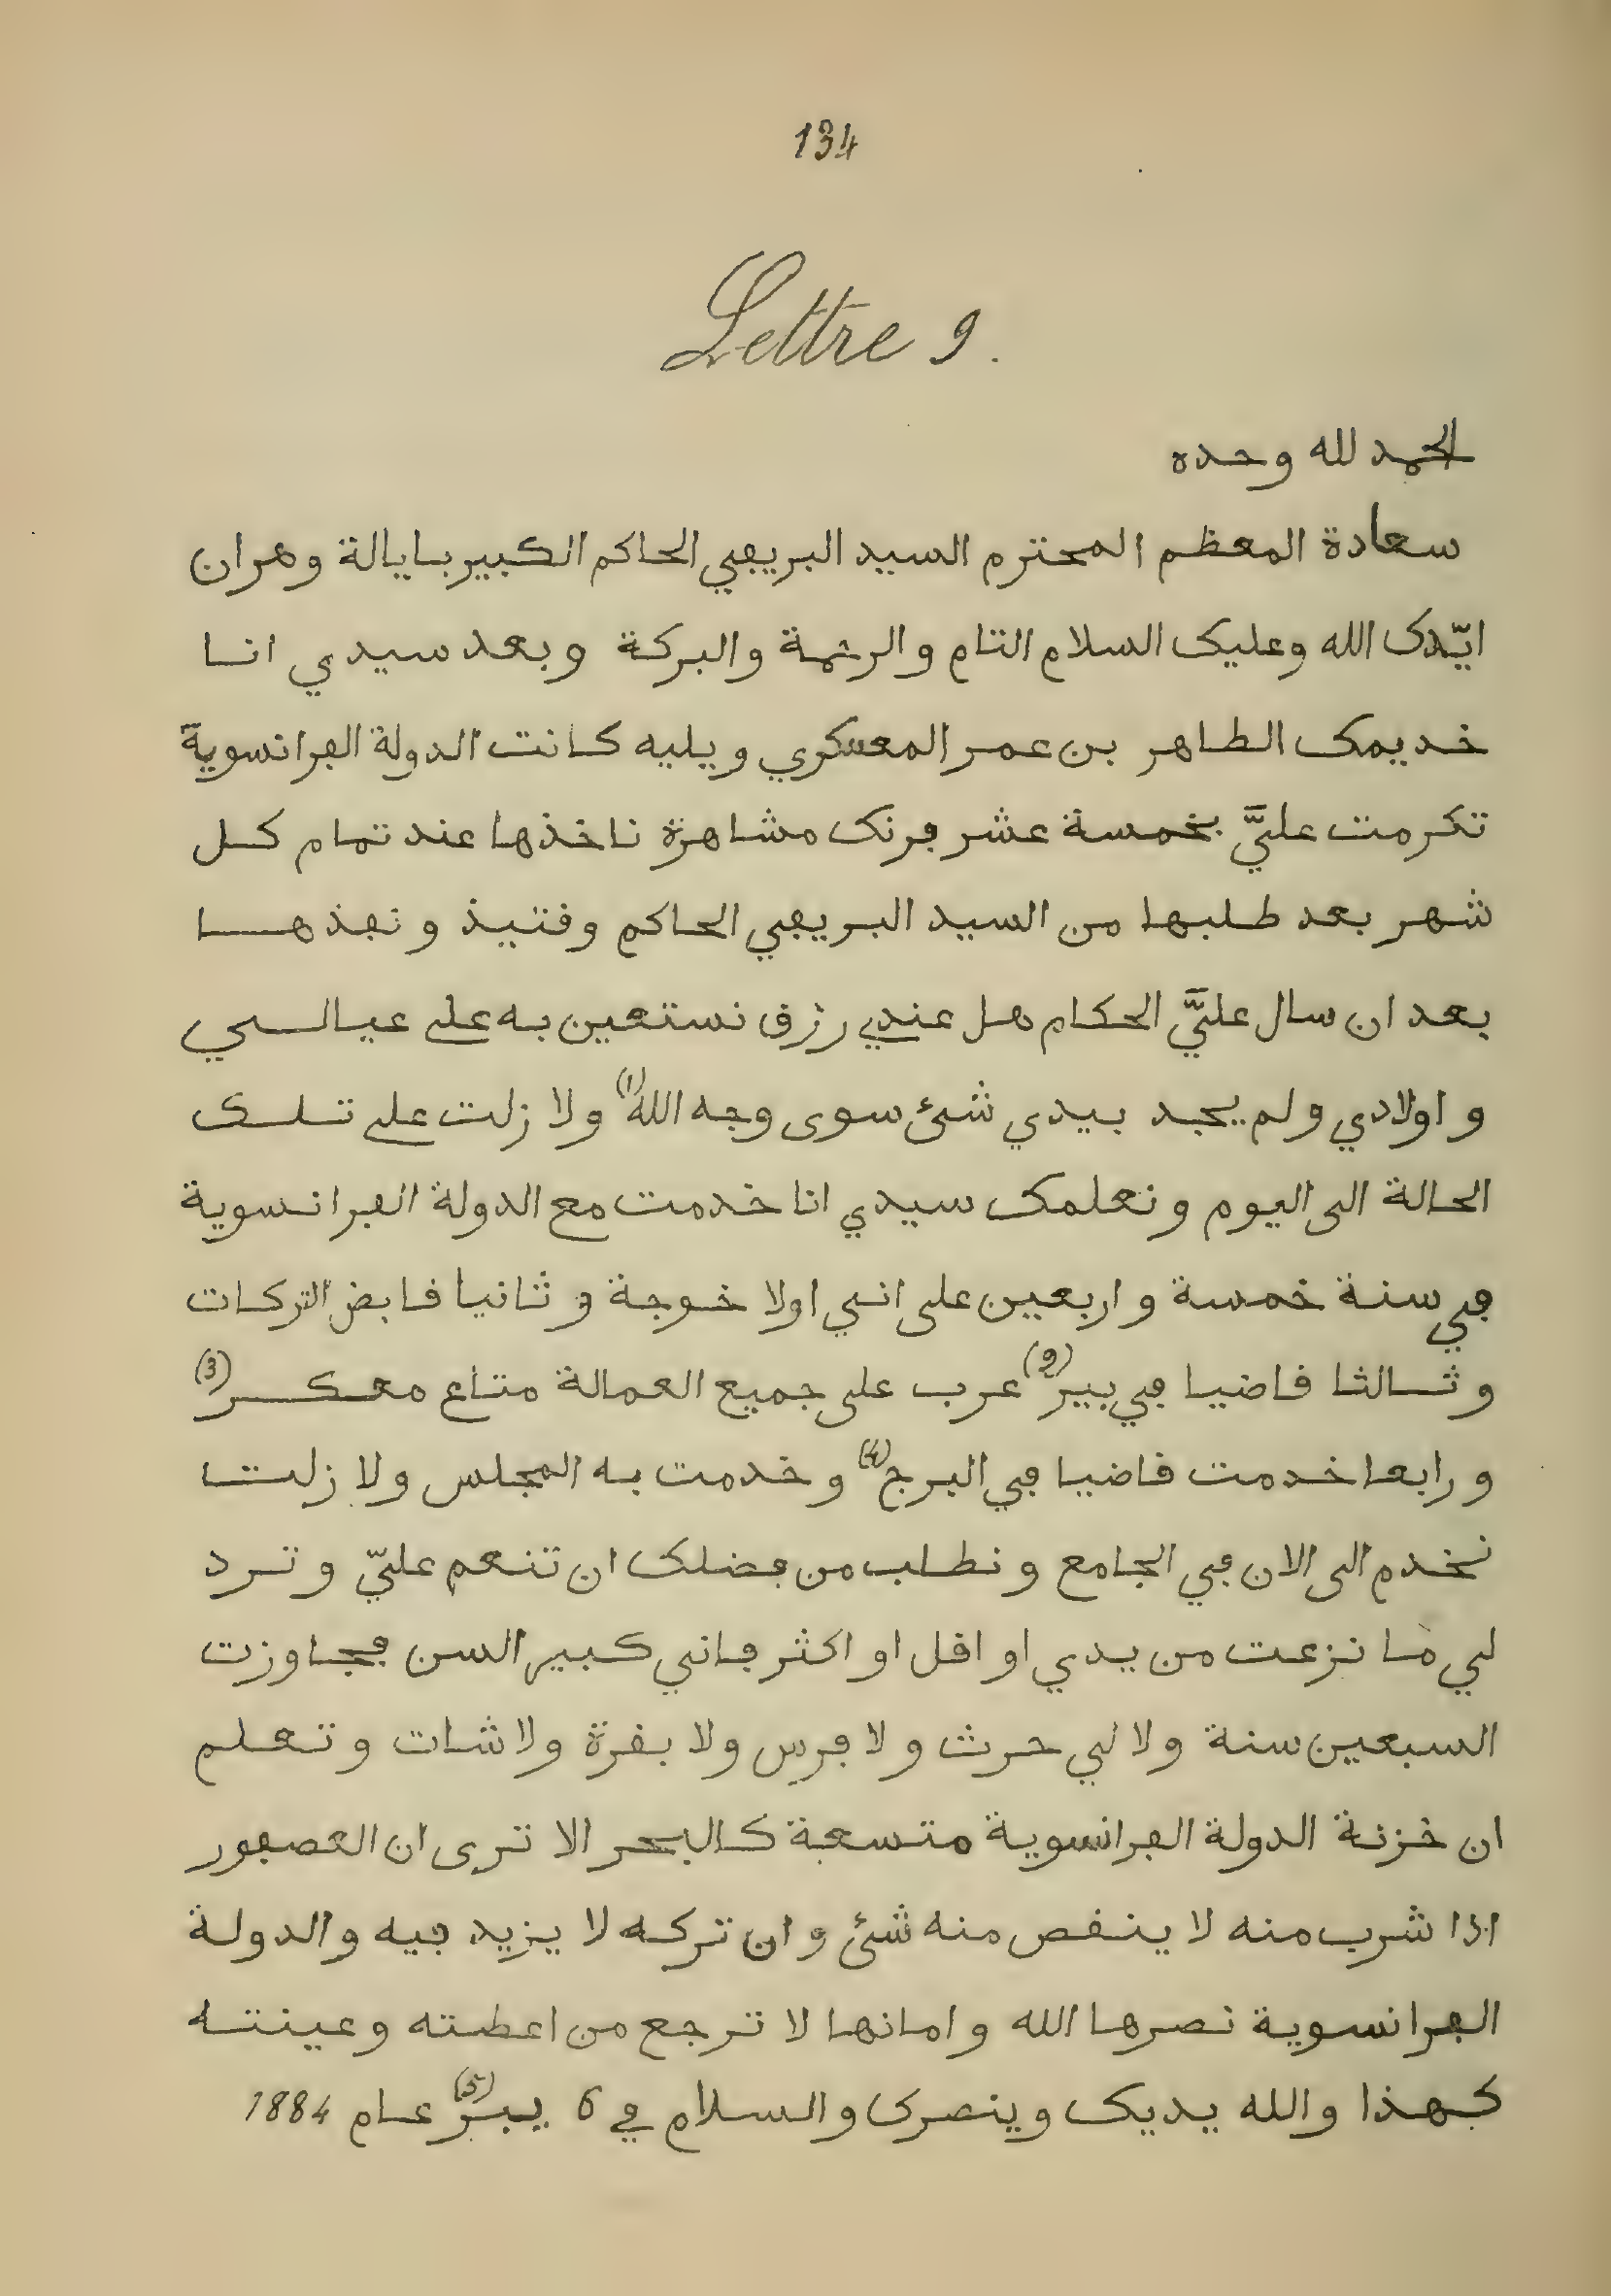 134
Lettre 9.
الحمد لله وحده
سعادة المعظم المحترم السيد البريڢي الحاكم الكبير بايالة وهران
ايّدك الله وعليك السلام التام والرحمة والبركة وبعد سيدي انا
خديمك الطاهر بن عمر المعسكري ويليه كانت الدولة الڢرانسوية
تكرمت عليَّ بخمسة عشر ڢرنك مشاهرة ناخذها عند تمام كل
شهر بعد طلبها من السيد البريڢي الحاكم وفتيذ ونڢذها
بعد ان سال عليَّ الحكام هل عندي رزق نستعين به على عيالي
و اولادي ولم يجد بيدي شئ سوى وجه الله (1) ولا زلت على تلك
الحالة الى اليوم ونعلمك سيدي انا خدمت مع الدولة الڢرانسوية
ڢي سنة خمسة واربعين على اني اولا خوجة وثانيا فابض التركات
وثالثا فاضيا ڢي بير (2) عرب على جميع العمالة متاع معكر (3)
ورابعا خدمت فاضيا ڢي البرج (4) وخدمت به المجلس ولا زلت
نخدم الى الان ڢي الجامع ونطلب من ڢضلك ان تنعم عليّ وترد
لي ما نزعت من يدي او افل او اكثر ڢاني كبير السن ڢجاوزت
السبعين سنة ولا لي حرث ولا ڢرس ولا بفرة ولا شات وتعلم
ان خزنة الدولة الڢرانسوية متسعة كالبحر الا ترى ان العصڢور
اذا شرب منه لا ينفص منه شئ وان تركه لا يزيد ڢيه والدولة
الڢرانسوية نصرها الله وامانها لا ترجع من اعطته وعينته
كهذا والله يديك وينصرك والسلام في 6 يبر (5) عام 1884